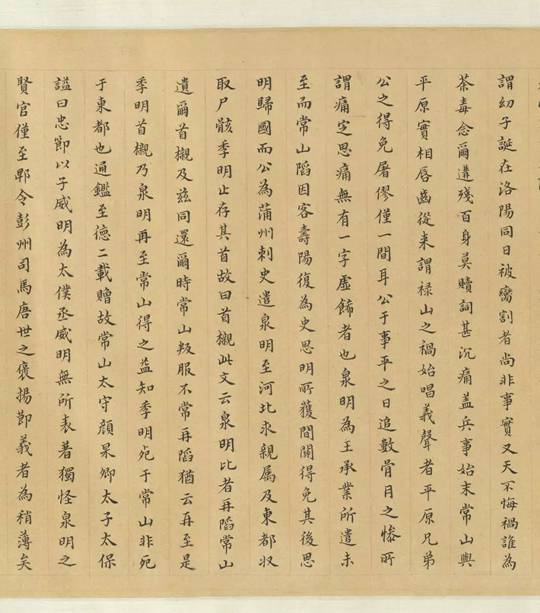 謂幼子誕在洛陽同日被臠割者尚非事實又天不悔禍誰為
荼毒念爾遘殘百身莫贖詞甚沉痛蓋兵事始末常山與
平原實相唇齒從来謂祿山之禍始唱義聲者平原兄弟
公之得免屠僇僅一間耳公于事平之日追數骨月之慘所
謂痛定思痛無有一字虛飾者也泉明為王承業所遣未
至而常山陷因客壽陽復為史思明所獲間關得免其後思
明歸國而公為蒲州刺史遣泉明至河北求親屬及東都收
取尸骸季明止存其首故曰首櫬此文云泉明比者再陷常山
遺爾首櫬及茲同還爾時常山叛服不常再陷猶云再至是
季明首櫬乃泉明再至常山得之益知季明死于常山非死
于東都也通鑑至德二載贈故常山太守顏杲卿太子太保
諡曰忠節以子威明為太僕丞威明無所表著獨怪泉明之
賢官僅至郫令彭州司馬唐世之褒揚節義者為稍薄矣